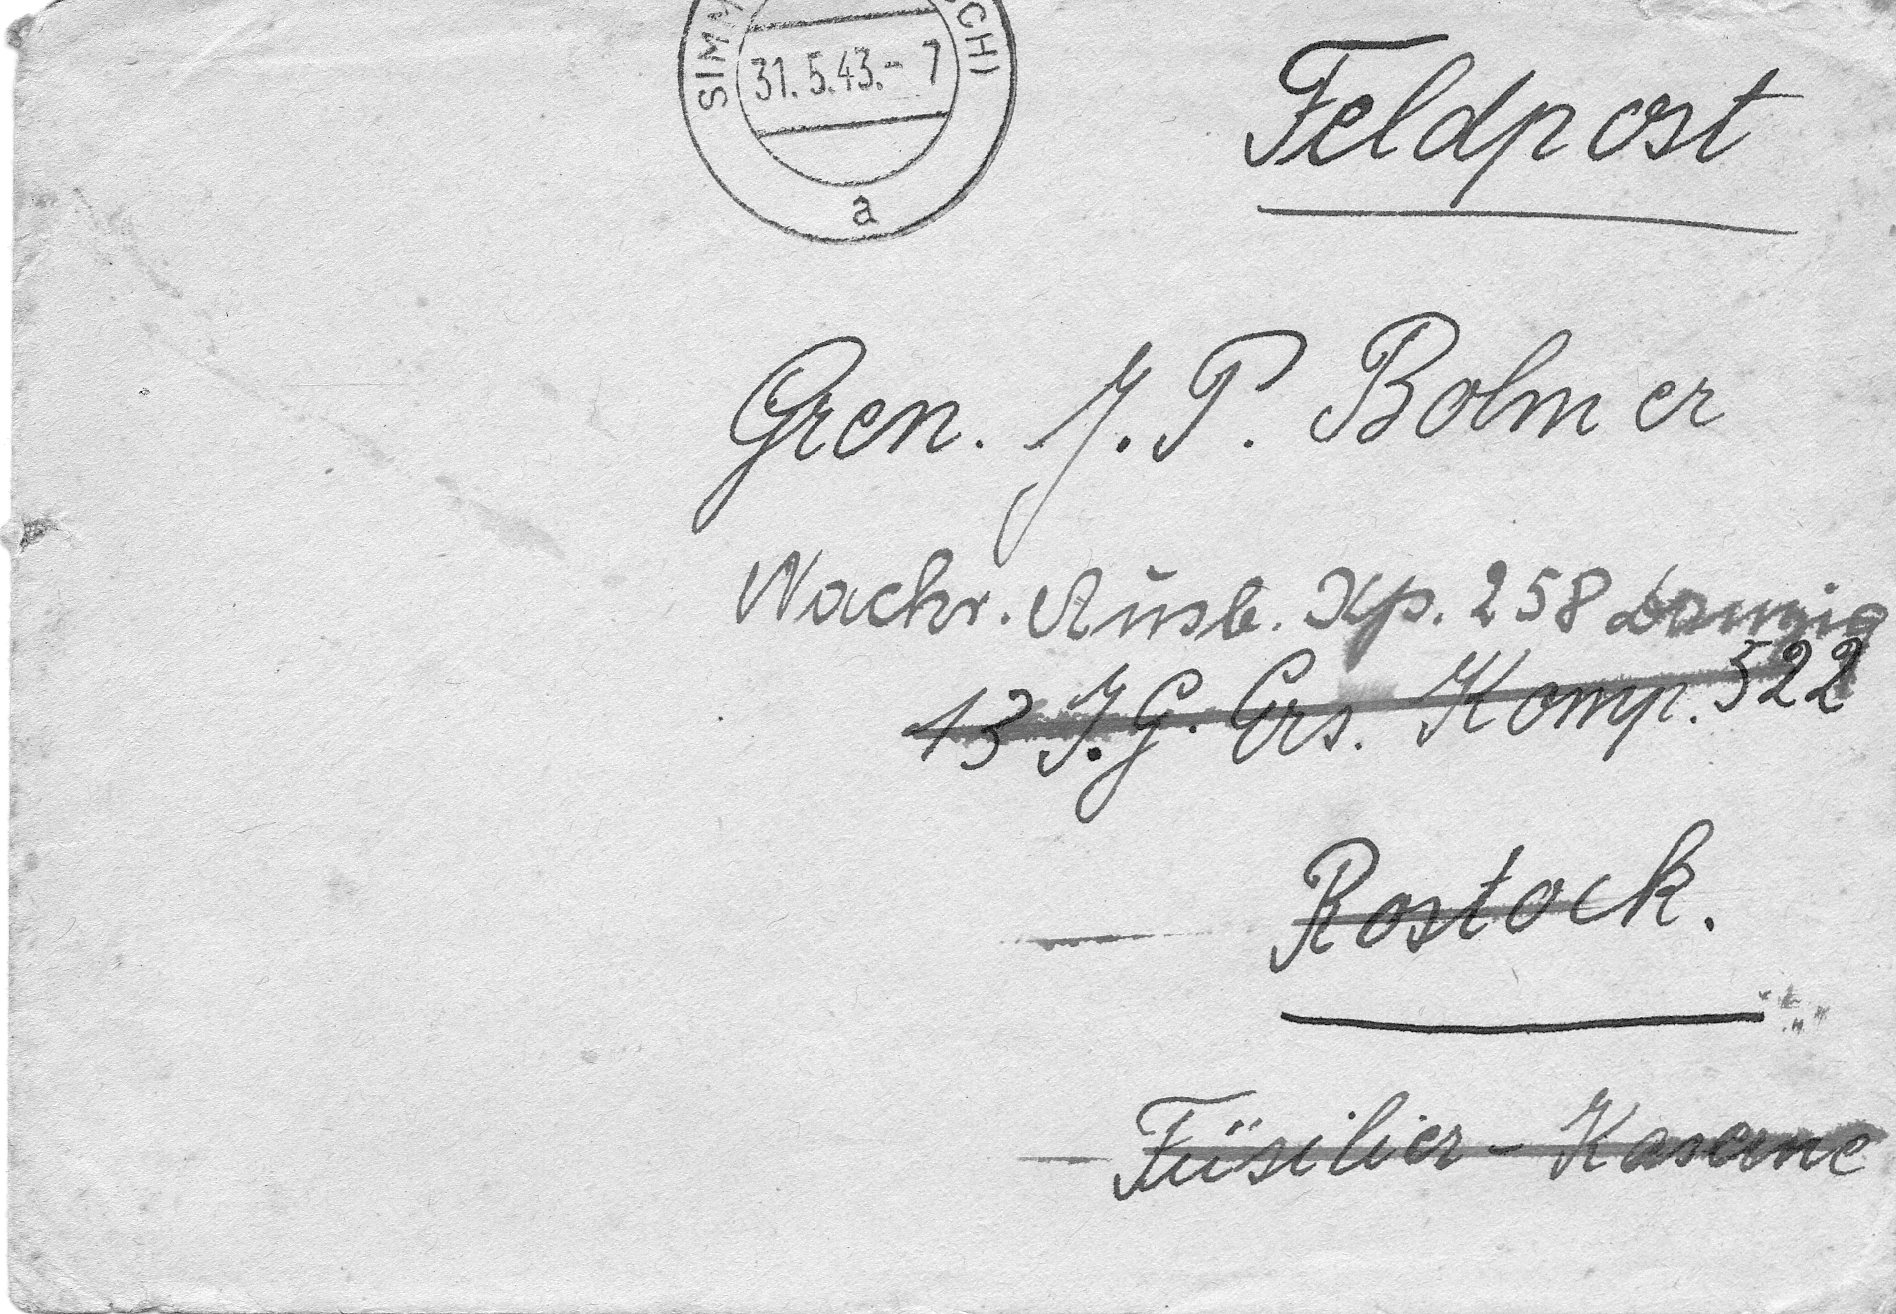 SIMM
31.5.43.-7
a
Feldpost
Gren. J. P. Bolmer
Nachr. Ausb. Kp. 258 Danzig
13 J.G. Ers. Komp. 522
Rostock.
Füsilier - Kaserne